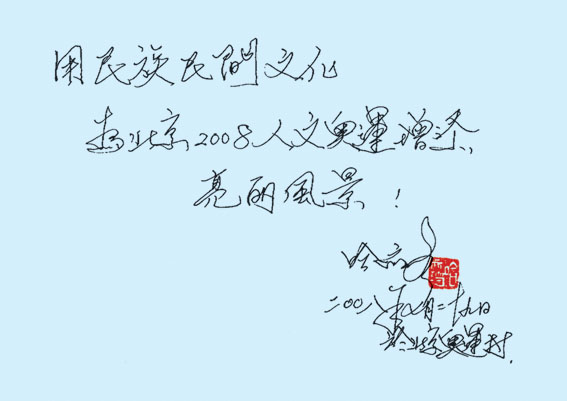 用民族民間文化
为北京2008人文奥運增添
亮丽風景!
哈亦
二00八年八月二十九日
於北京奥運村.